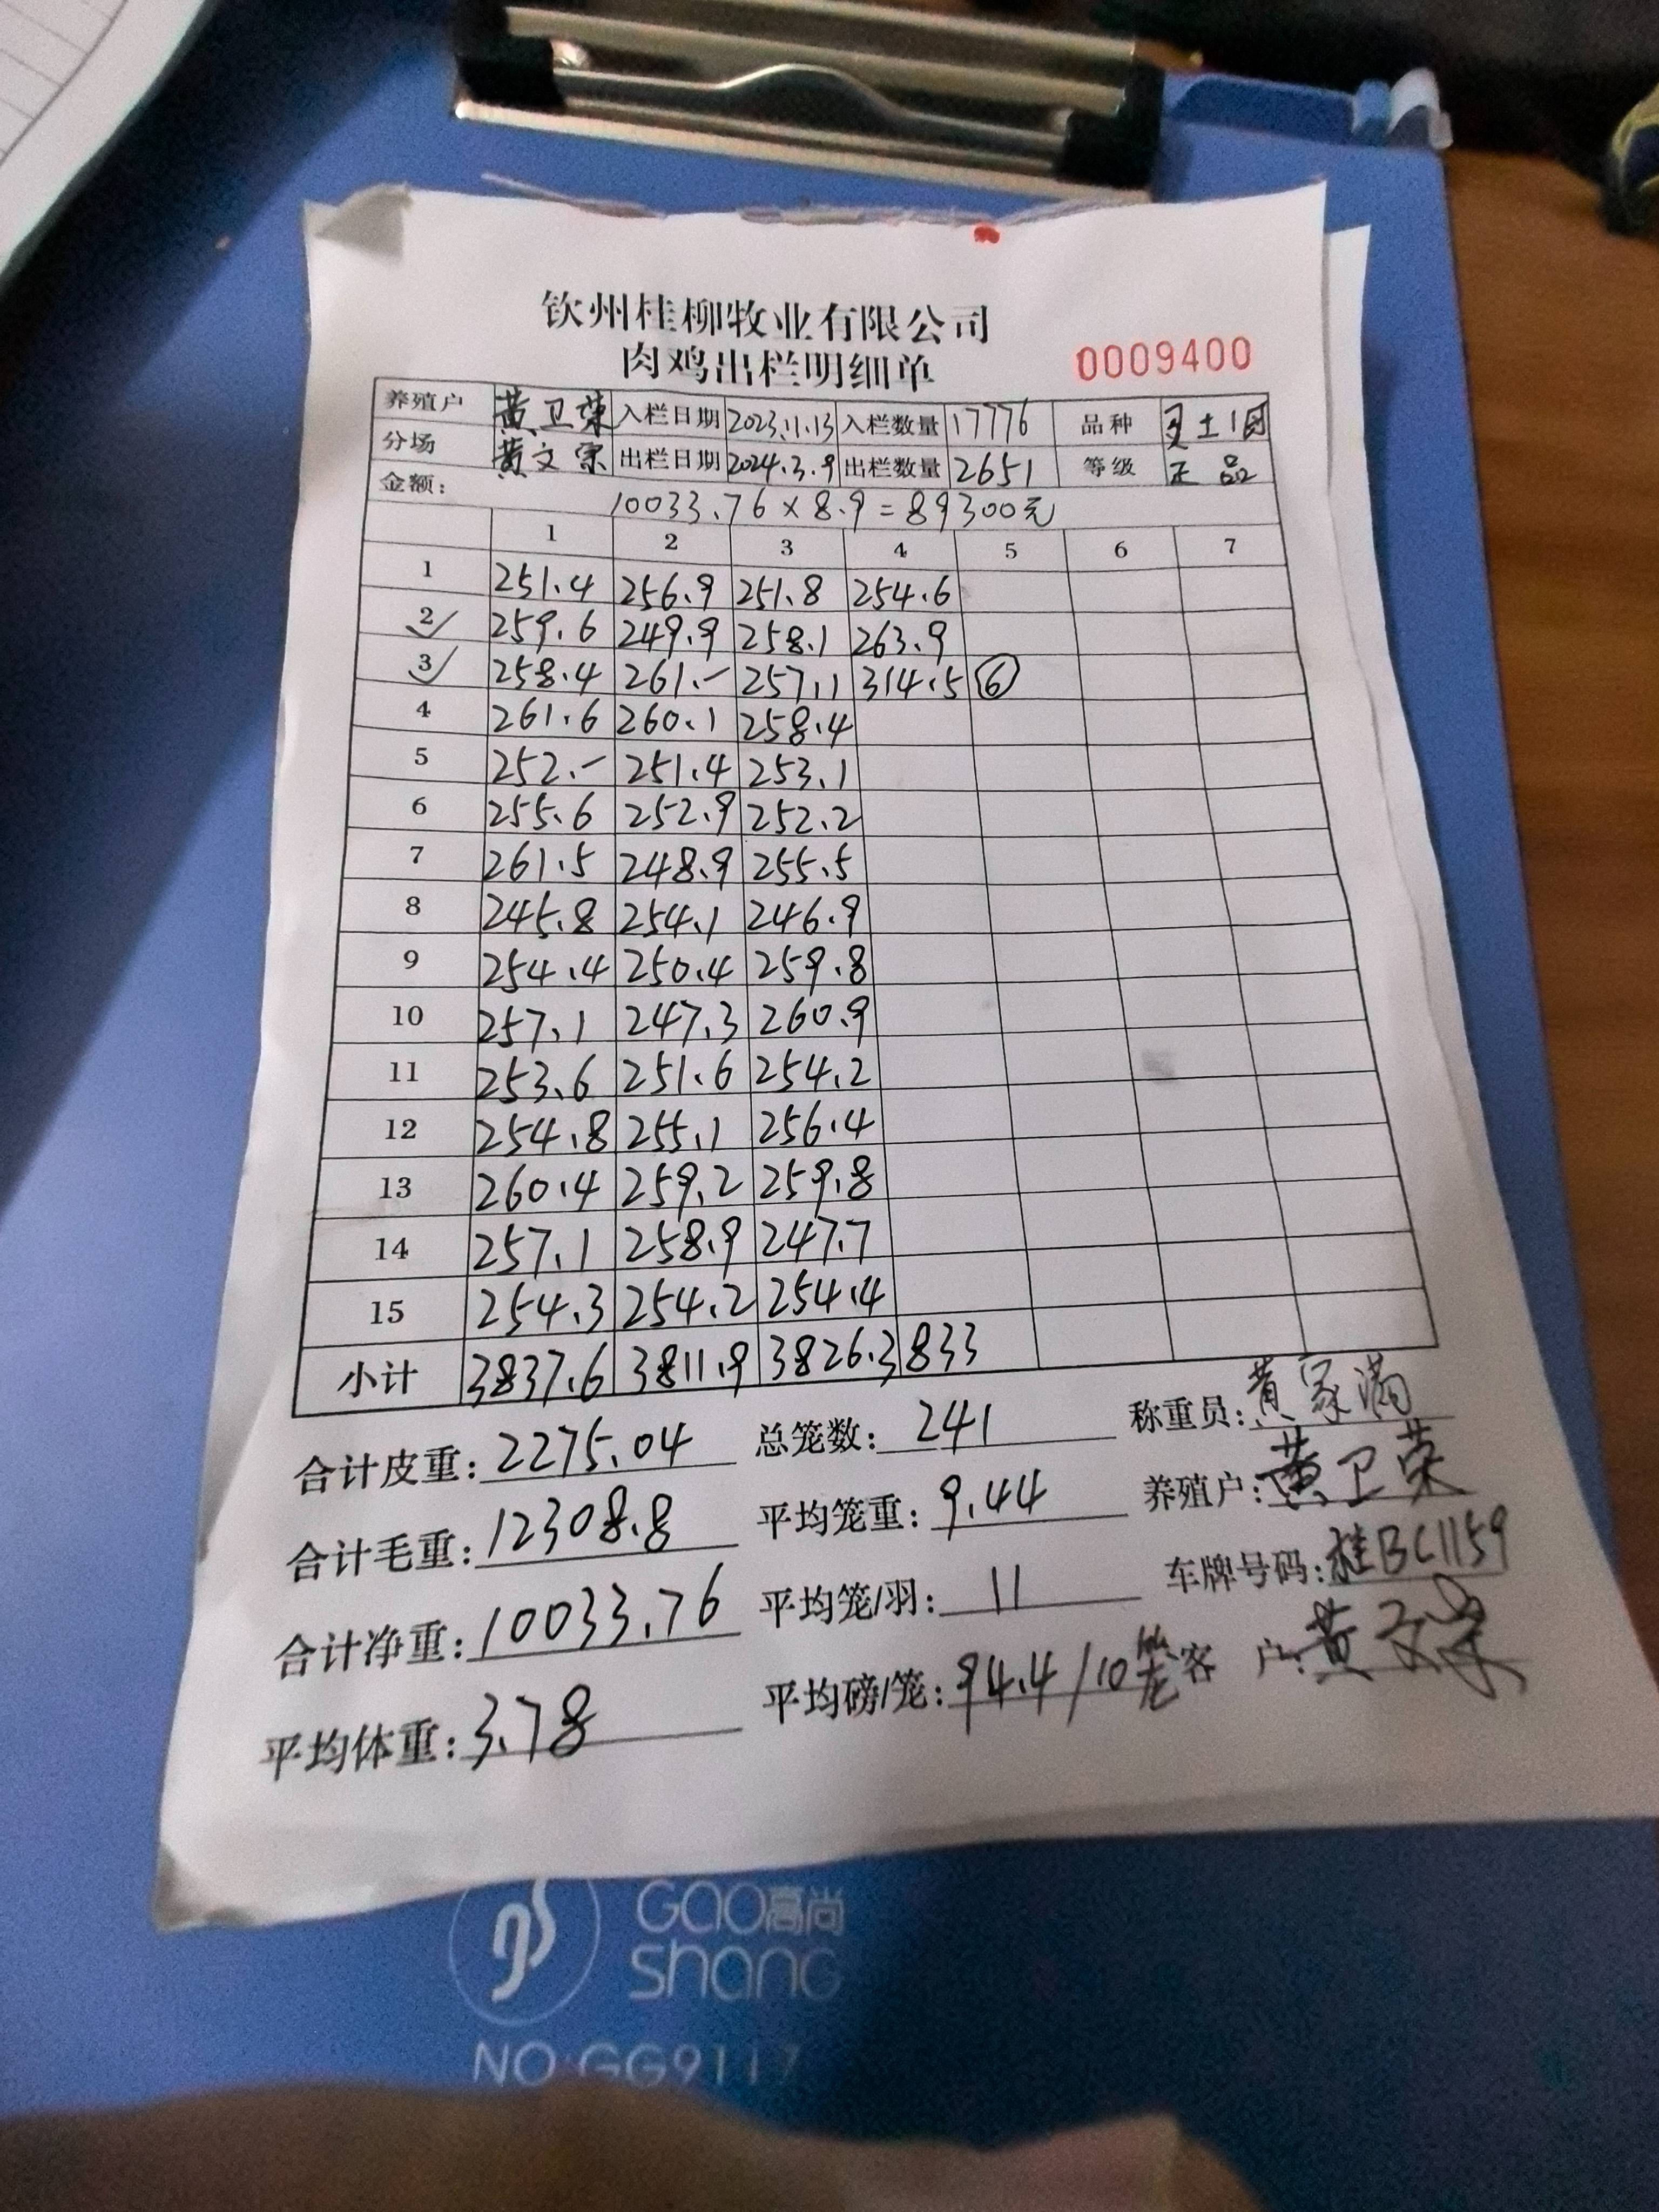 钦州桂柳牧业有限公司
肉鸡出栏明细单 0009400
养殖户 黄卫荣 入栏日期 2023.11.13 入栏数量 17776 品种 土1
分场 黄文宗 出栏日期 2024.3.9 出栏数量 2651 等级 正品
金额: 10033.76×8.9=89300元
1 2 3 4 5 6 7
1 251.4 256.9 251.8 254.6
2✓ 259.6 249.9 258.1 263.9
3✓ 258.4 261.- 257.1 314.5 ⑥
4 261.6 260.1 258.4
5 252.- 251.4 253.1
6 255.6 252.9 252.2
7 261.5 248.9 255.5
8 245.8 254.1 246.9
9 254.4 250.4 259.8
10 257.1 247.3 260.9
11 253.6 251.6 254.2
12 254.8 255.1 256.4
13 260.4 259.2 259.8
14 257.1 258.9 247.7
15 254.3 254.2 254.4
小计 3837.6 3811.9 3826.3 833
合计皮重: 2275.04 总笼数: 241 称重员: 黄家满
合计毛重: 12308.8 平均笼重: 9.44 养殖户: 黄卫荣
合计净重: 10033.76 平均笼/羽: 11 车牌号码: 桂BC1159
平均体重: 3.78 平均磅/笼: 94.4/10笼 客 户: 黄文宗
GAO高尚
shang
NO:GG9117